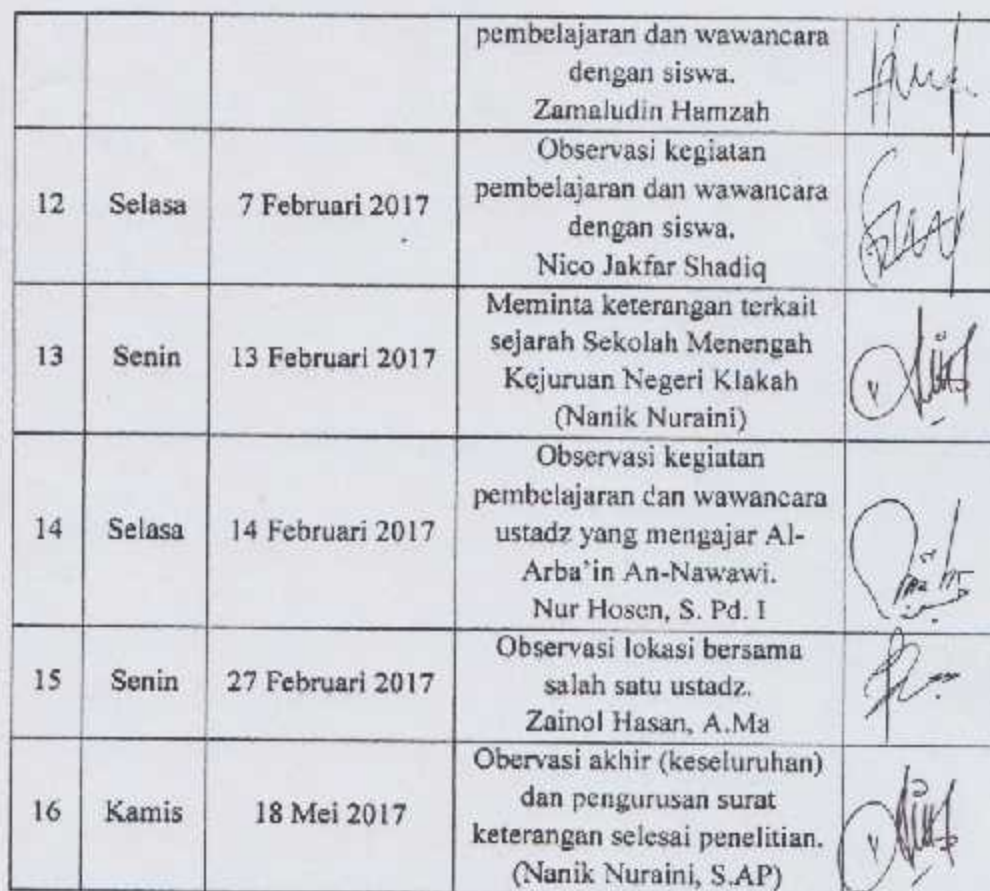 pembelajaran dan wawancara
dengan siswa.
Zamaludin Hamzah
12 Selasa 7 Februari 2017 Observasi kegiatan
pembelajaran dan wawancara
dengan siswa.
Nico Jakfar Shadiq
13 Senin 13 Februari 2017 Meminta keterangan terkait
sejarah Sekolah Menengah
Kejuruan Negeri Klakah
(Nanik Nuraini)
14 Selasa 14 Februari 2017 Observasi kegiatan
pembelajaran dan wawancara
ustadz yang mengajar Al-
Arba'in An-Nawawi.
Nur Hosen, S. Pd. I
15 Senin 27 Februari 2017 Observasi lokasi bersama
salah satu ustadz.
Zainol Hasan, A.Ma
16 Kamis 18 Mei 2017 Obervasi akhir (keseluruhan)
dan pengurusan surat
keterangan selesai penelitian.
(Nanik Nuraini, S.AP)